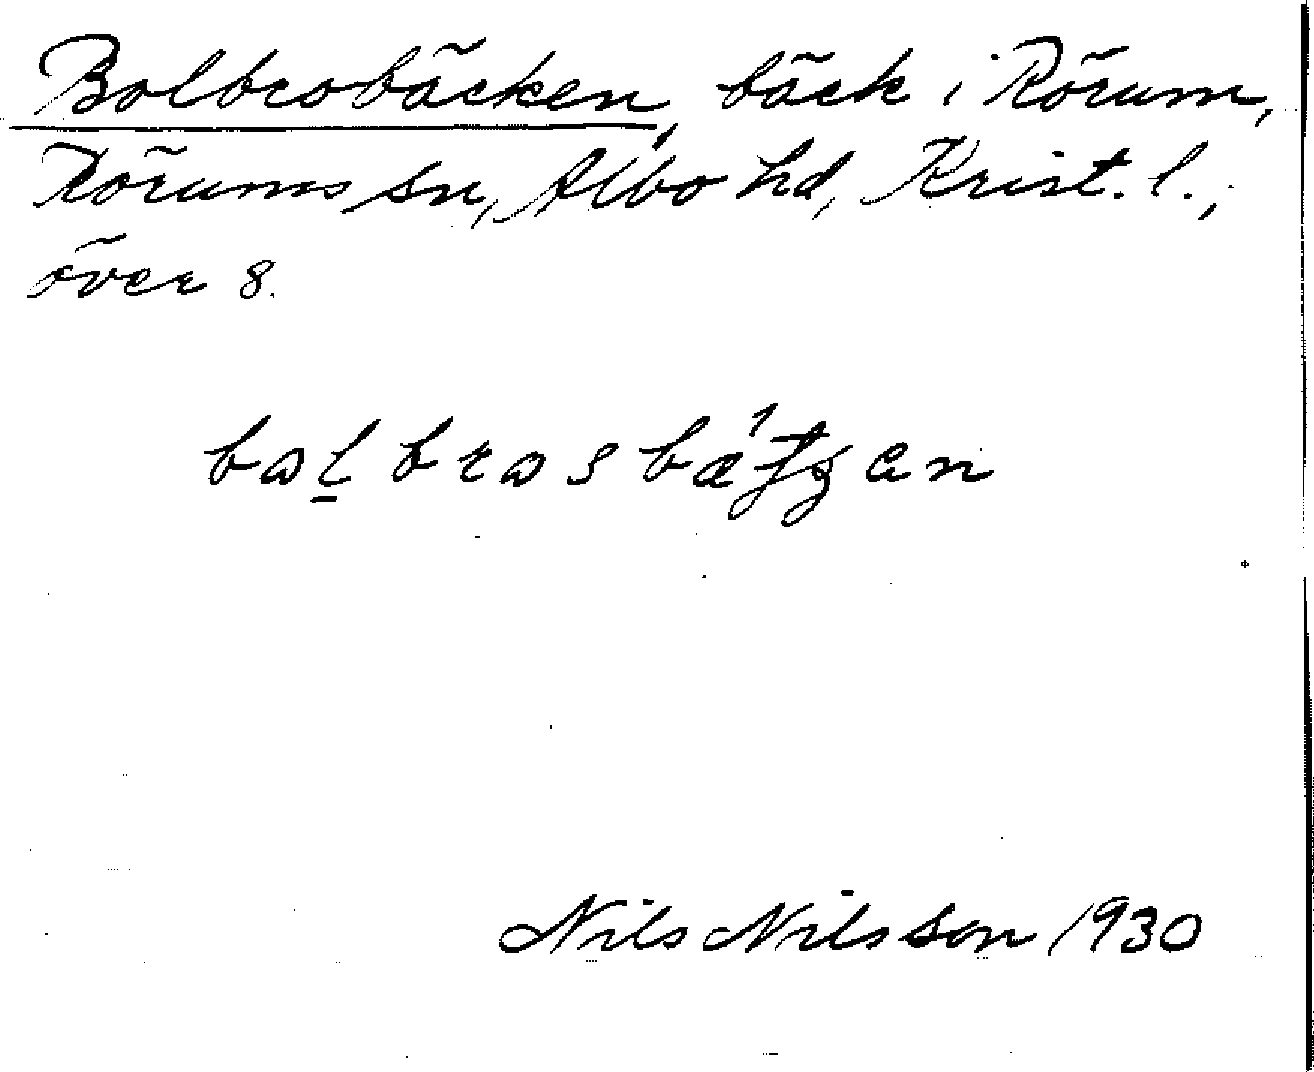 Bolbrobäcken, bäck i Rörum,
Rörums sn, Albo hd, Krist. l.,
över 8.
Nils Nilsson 1930